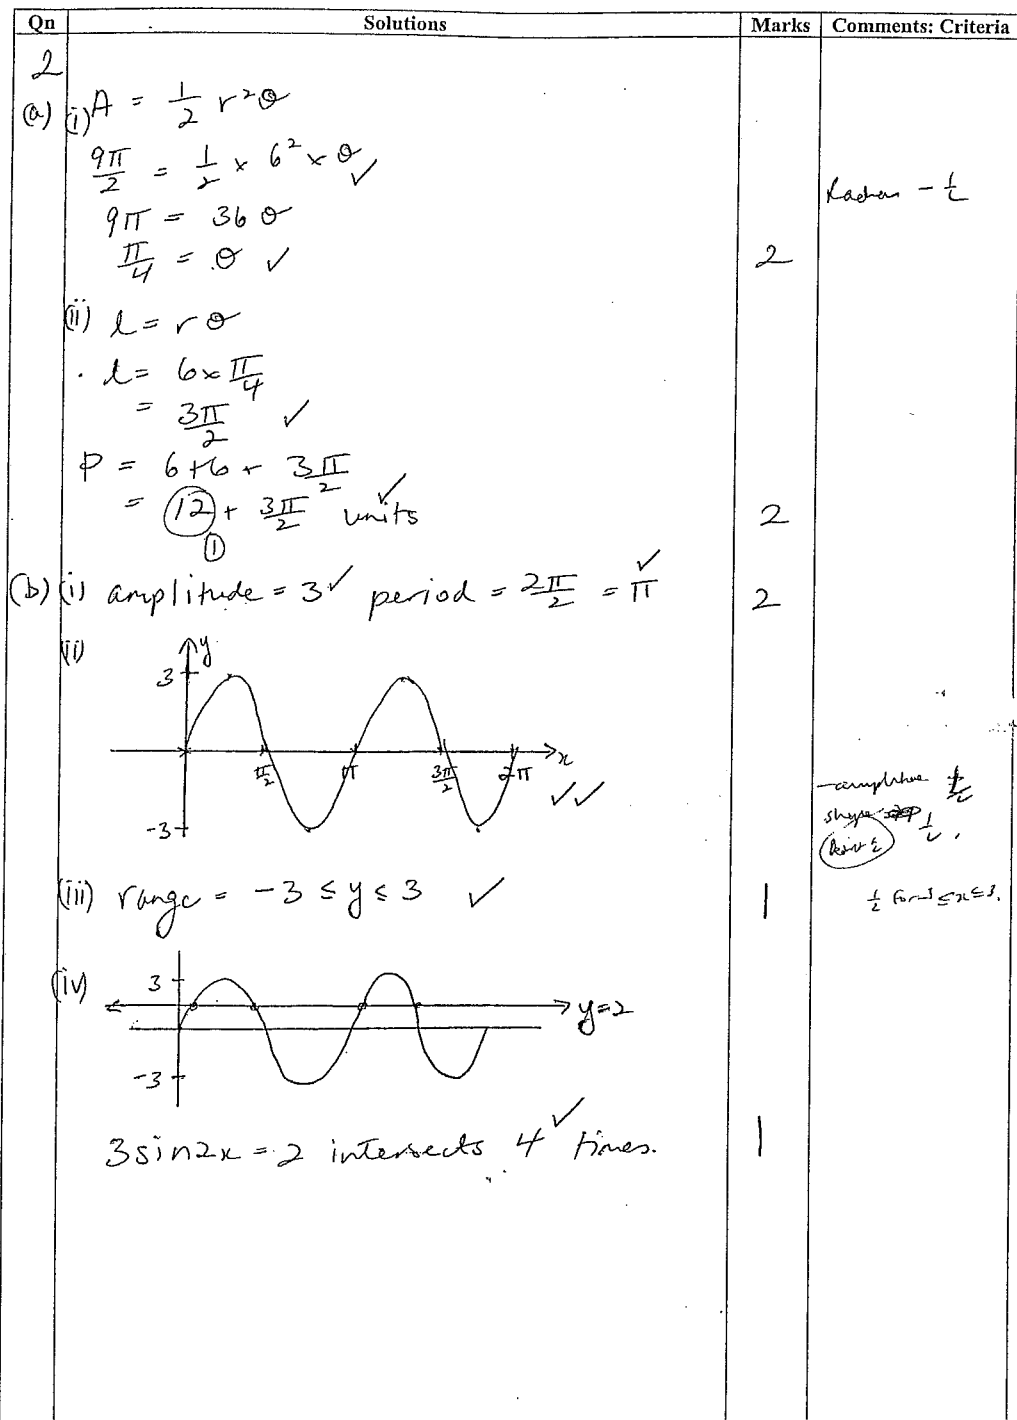 Qn Solutions Marks Comments: Criteria
2
(a) (i) A = 1/2 r²θ
9π/2 = 1/2 × 6² × θ ✓
- 1/2
9π = 36θ
π/4 = θ ✓ 2
(ii) l = rθ
l = 6 × π/4
= 3π/2 ✓
P = 6+6+ 3π/2
= 12 + 3π/2 units ✓ 2
①
(b) (i) amplitude = 3 ✓ period = 2π/2 = π ✓ 2
(ii) y
3
π/2 π 3π/2 2π x
✓✓
-3
shape 1/2
(iii) range = -3 ≤ y ≤ 3 ✓ 1
1/2 for -3 ≤ x ≤ 3.
(iv) 3
y=2
-3
3sin2x = 2 intersects 4 ✓ times. 1